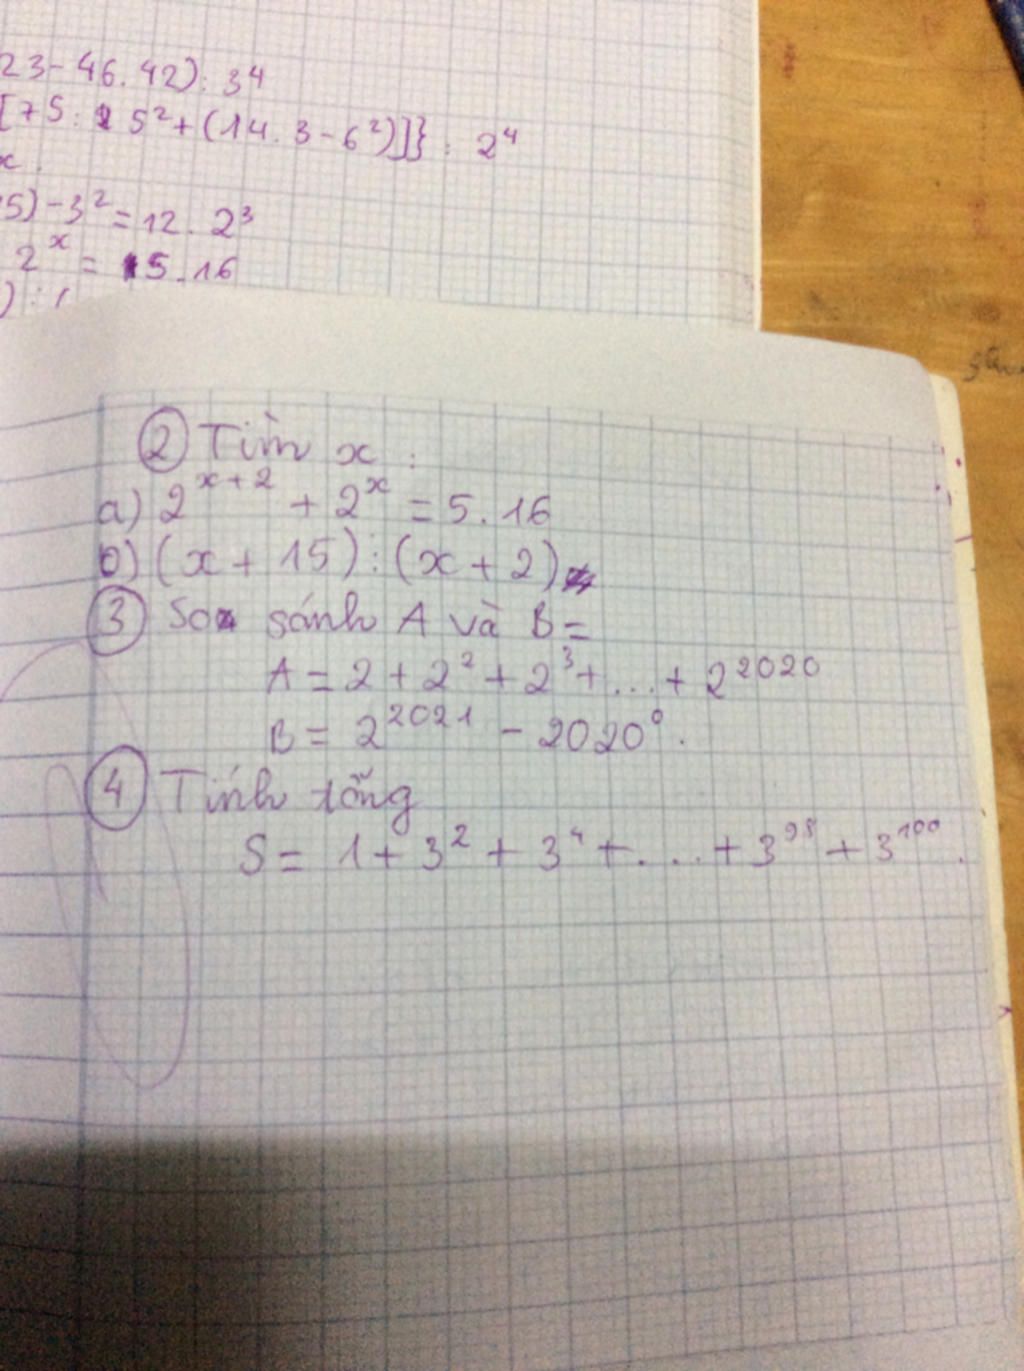 23 - 46.42) : 3⁴
[75 : 5² + (14.3 - 6²)]} : 2⁴
x.
5) - 3² = 12.2³
2ˣ = 15.16
) : (
② Tìm x :
a) 2ˣ⁺² + 2ˣ = 5.16
b) (x + 15) : (x + 2)
③ So sánh A và B =
A = 2 + 2² + 2³ + ... + 2²⁰²⁰
B = 2²⁰²¹ - 2020⁰.
④ Tính tổng
S = 1 + 3² + 3⁴ + .... + 3⁹⁸ + 3¹⁰⁰.